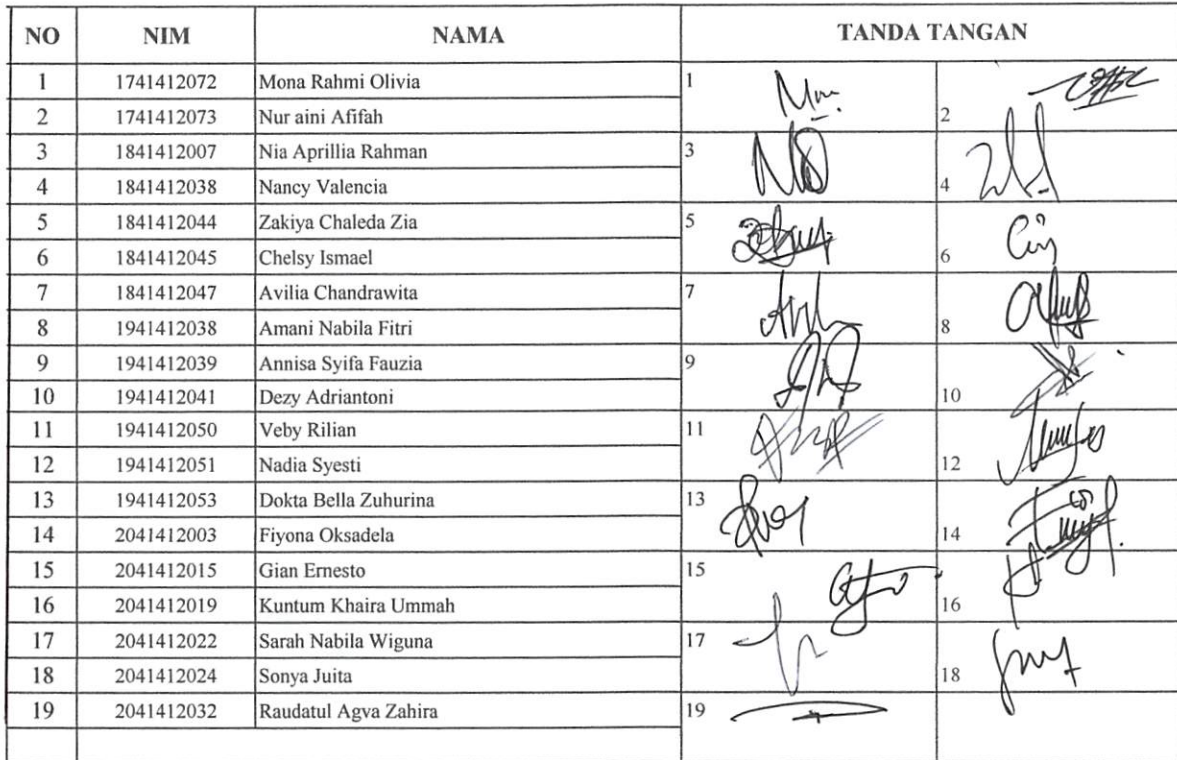 NO NIM NAMA TANDA TANGAN
1 1741412072 Mona Rahmi Olivia 1
2 1741412073 Nur aini Afifah 2
3 1841412007 Nia Aprillia Rahman 3
4 1841412038 Nancy Valencia 4
5 1841412044 Zakiya Chaleda Zia 5
6 1841412045 Chelsy Ismael 6
7 1841412047 Avilia Chandrawita 7
8 1941412038 Amani Nabila Fitri 8
9 1941412039 Annisa Syifa Fauzia 9
10 1941412041 Dezy Adriantoni 10
11 1941412050 Veby Rilian 11
12 1941412051 Nadia Syesti 12
13 1941412053 Dokta Bella Zuhurina 13
14 2041412003 Fiyona Oksadela 14
15 2041412015 Gian Ernesto 15
16 2041412019 Kuntum Khaira Ummah 16
17 2041412022 Sarah Nabila Wiguna 17
18 2041412024 Sonya Juita 18
19 2041412032 Raudatul Agva Zahira 19